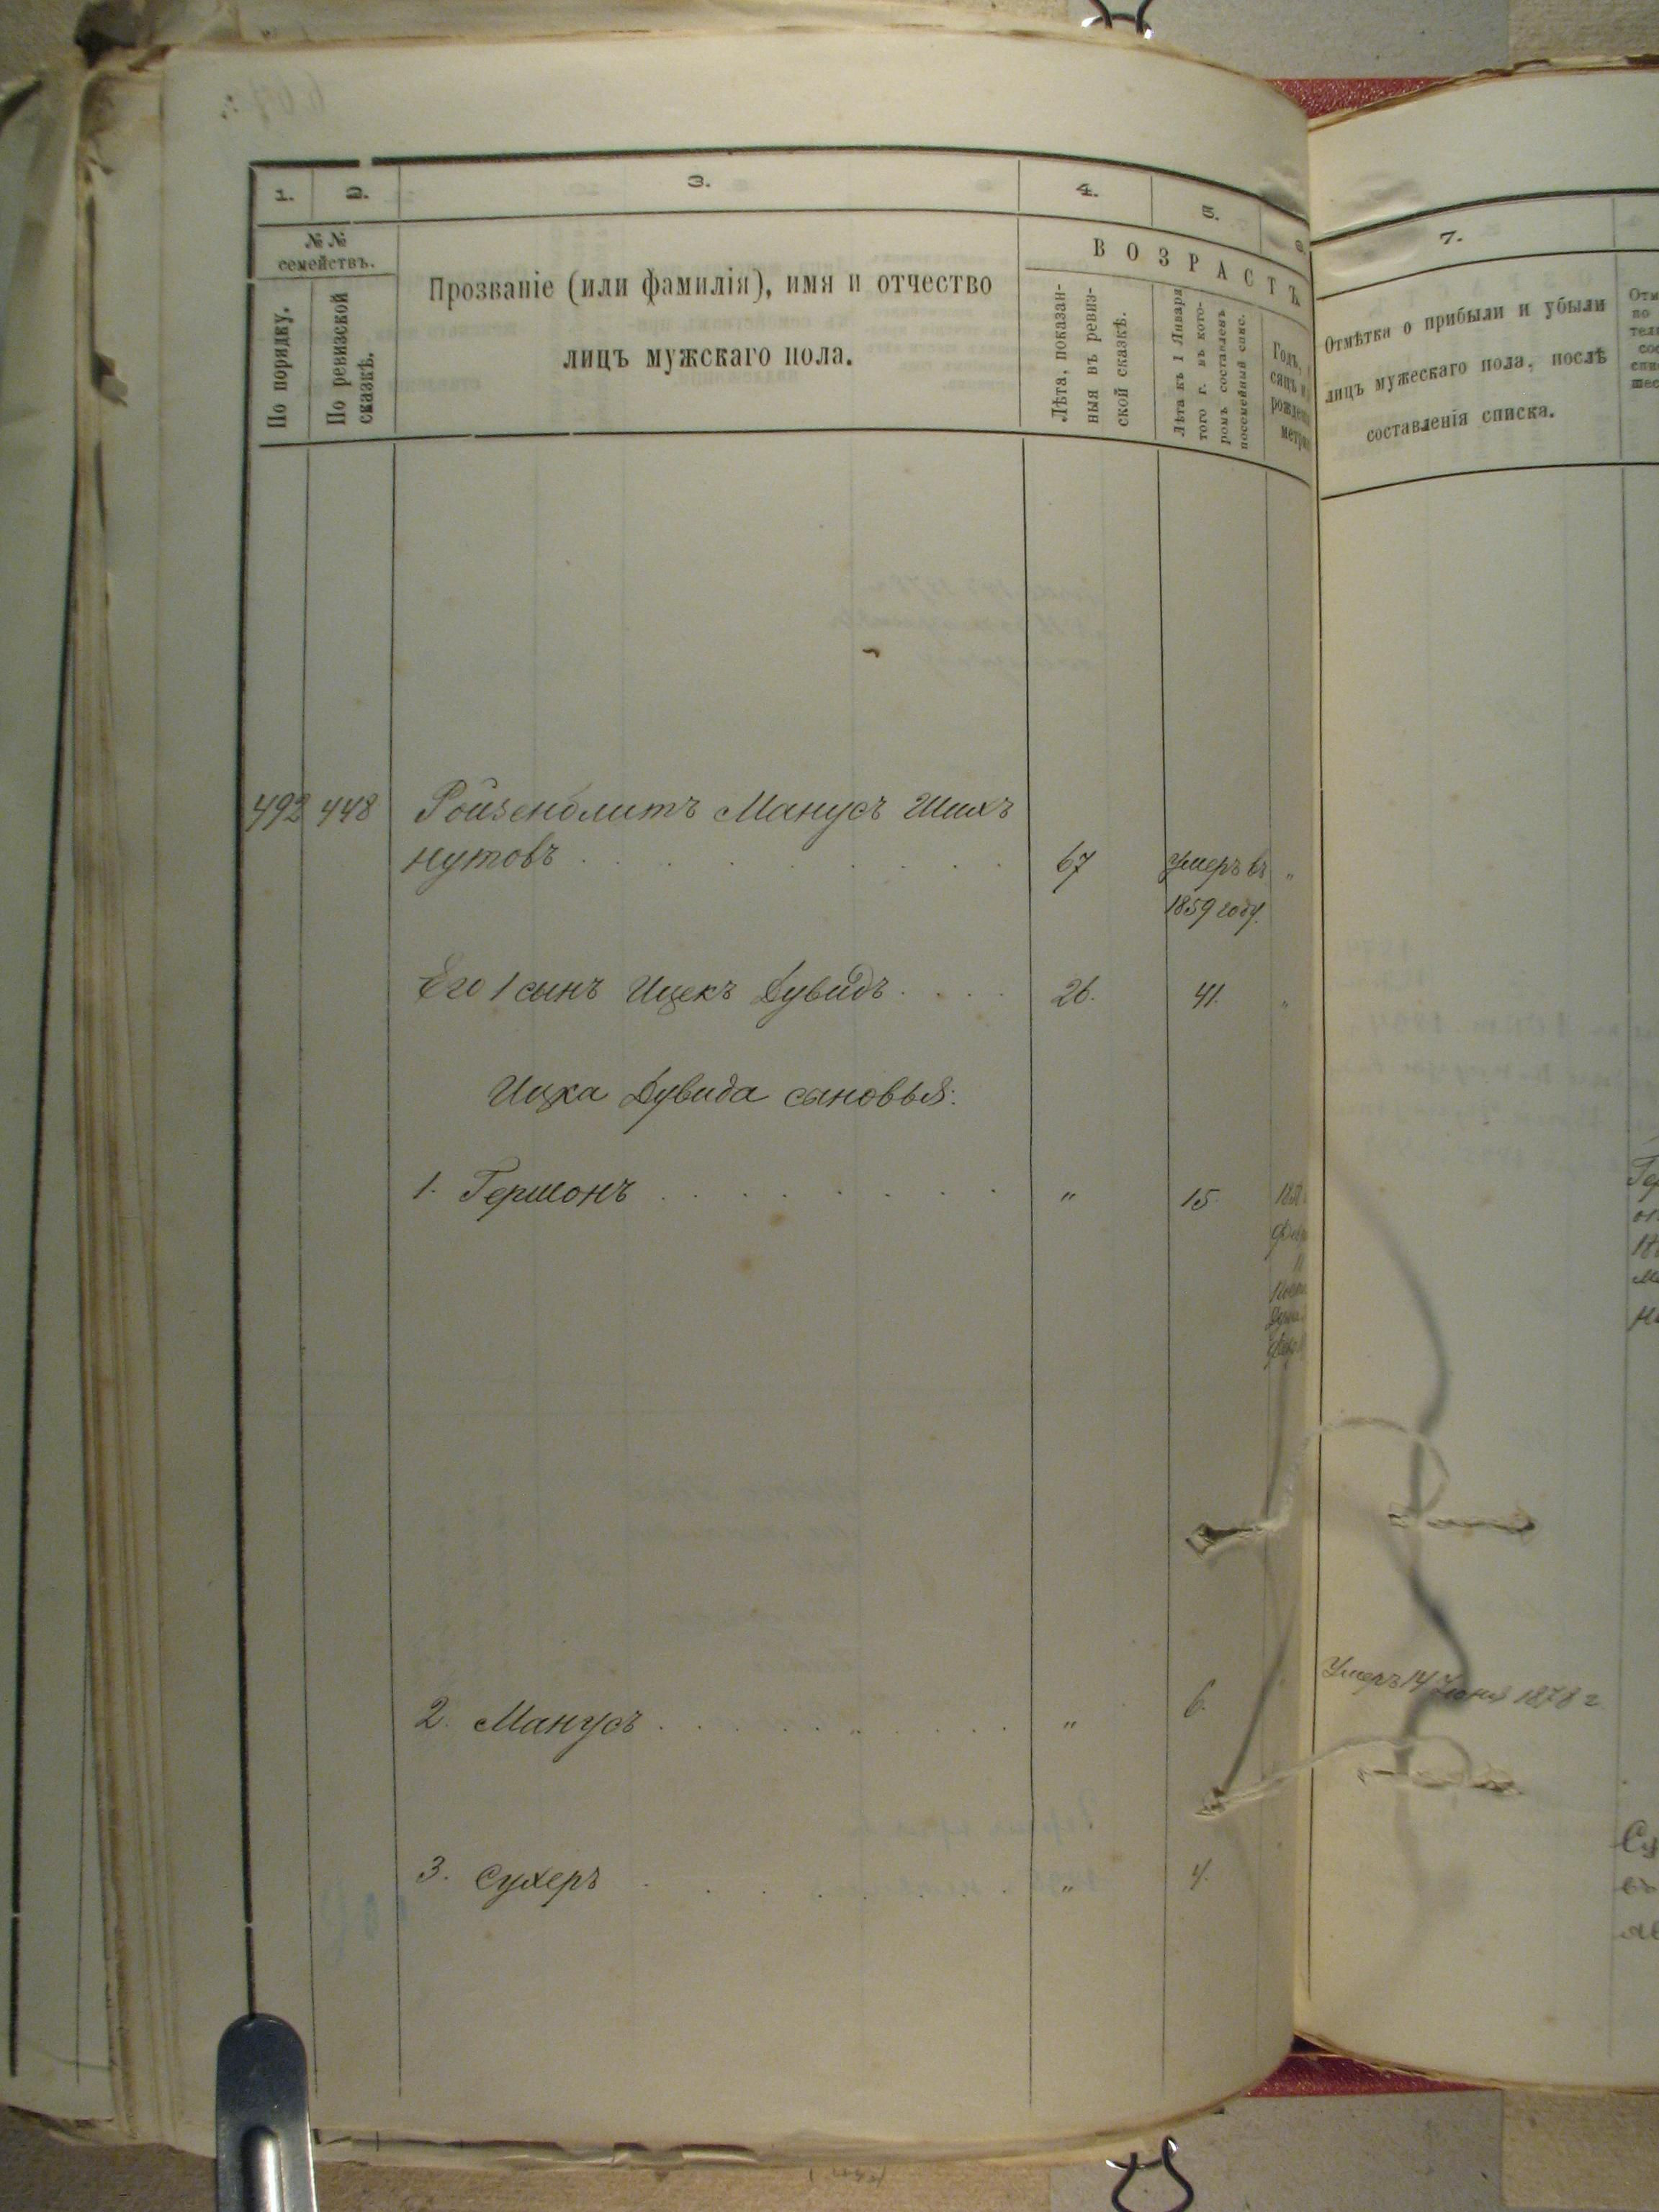 1.
2.
3.
4.
5.
6.
№ №
семействъ.
По порядку.
По ревизской
сказкѣ.
Прозваніе (или фамилія), имя и отчество
лицъ мужскаго пола.
ВОЗРАСТЪ
Лѣта, показан-
ныя въ ревиз-
ской сказкѣ.
Лѣта къ 1 Января
того г. въ кото-
ромъ составленъ
посемейный спис.
Годъ,
сяцъ и
рожден
метри
492 448 Ройзенблитъ Манусъ Шихъ
нутовъ . . . . . . 67 Умеръ въ "
1859 году.
Его 1 сынъ Ицекъ Дувидъ . . . . 26. 41. "
Ицка Дувида сыновья:
1. Гершонъ . . . . . . " 15.
2. Манусъ . . . . . . " 6.
3. Сухеръ . . . . . . " 4.
7.
Отмѣтка о прибыли и убыли
лицъ мужескаго пола, послѣ
составленія списка.
Умеръ 14 Июня 1878 г